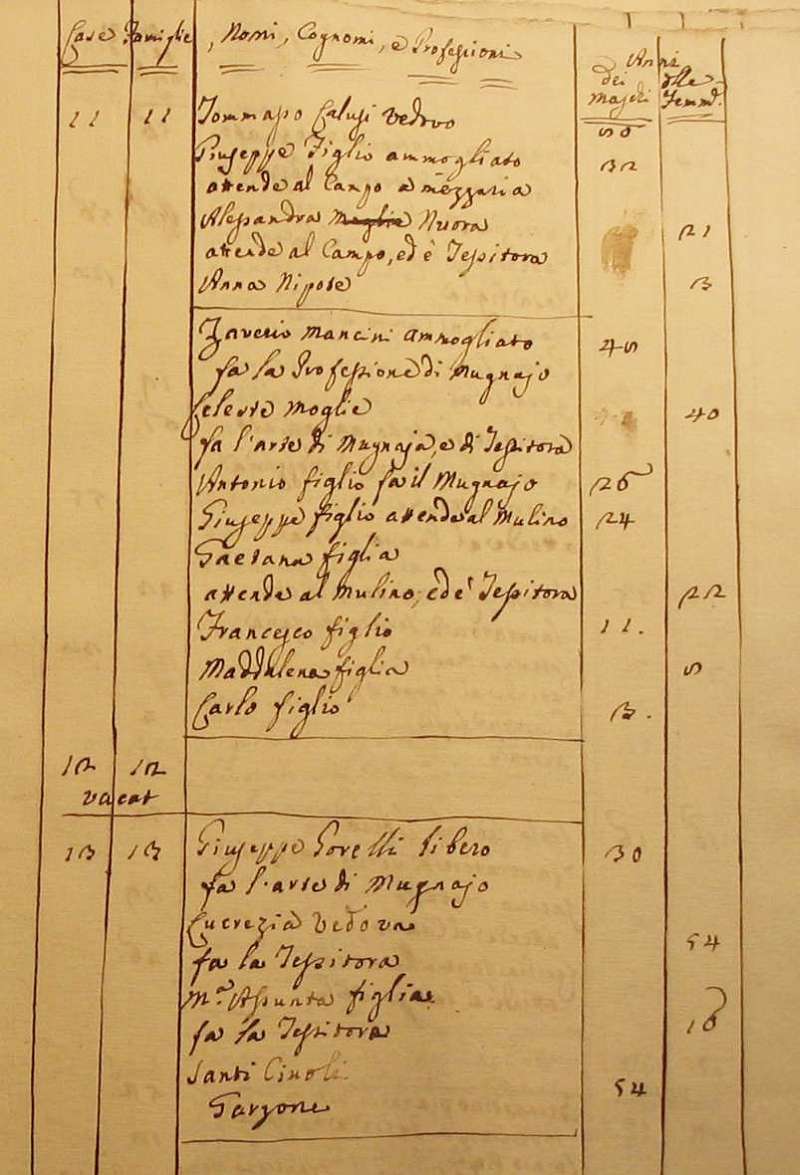 Case Famiglie, Nomi, Cognomi, e Professioni Anni
dei Maschi delle Femm.
11 11 Tommaso Calusi Vedovo 50
Giuseppe Figlio ammogliato 32
attende al Campo a mezzaria
Alessandra Moglie Nuora 21
attende al Campo, ed è Tessitora
Anna Nipote 3
Zaverio Mancini Ammogliato 45
fa la Professione di Mugnajo
Celeste Moglie 40
fa l'arte di Mugnaja, e di Tessitora
Antonio figlio fa il Mugnajo 26
Giuseppe figlio attende al Mulino 24
Gaetana figlia
attende al Mulino, ed è Tessitora 22
Francesco figlio 11.
Maddalena figlia 5
Carlo figlio 3.
12 12
vacat
13 13 Giuseppe libero 30
fa l'arte di Mugnajo
Lucrezia Vedova 54
fa la Tessitora
M.ª Assunta figlia 16
fa la Tessitora
Santi 54
Garzone